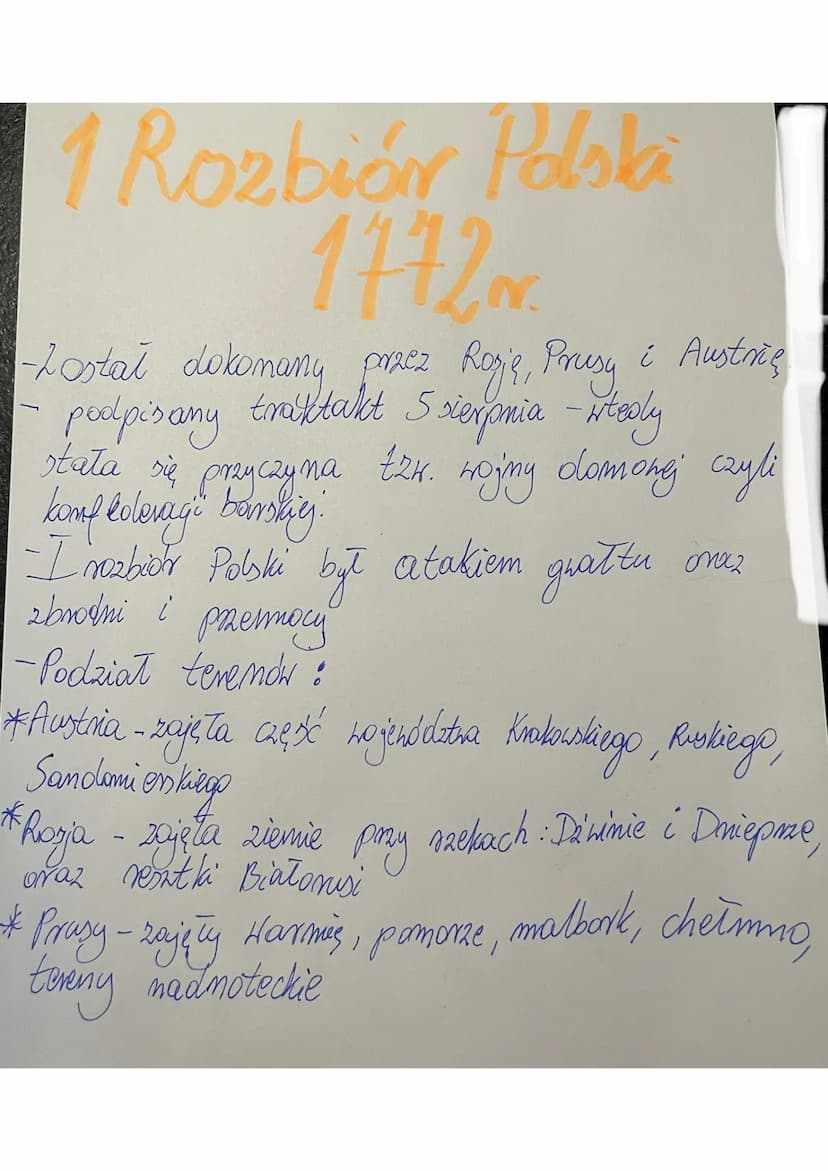 1 Rozbiór Polski
1772 r.
-Został dokonany przez Rosję, Prusy i Austrię
- podpisany traktakt 5 sierpnia - wtedy
stała się przyczyna tzw. wojny domowej czyli
konfederacji barskiej.
- I rozbiór Polski był atakiem gwałtu oraz
zbrodni i przemocy
- Podział terenów :
*Austria - zajęła część województwa Krakowskiego, Ruskiego,
Sandomierskiego
*Rosja - zajęła ziemie przy rzekach : Dźwinie i Dnieprze,
oraz resztki Białorusi
* Prusy - zajęły Warmię, pomorze, malbork, chełmno,
tereny nadnoteckie